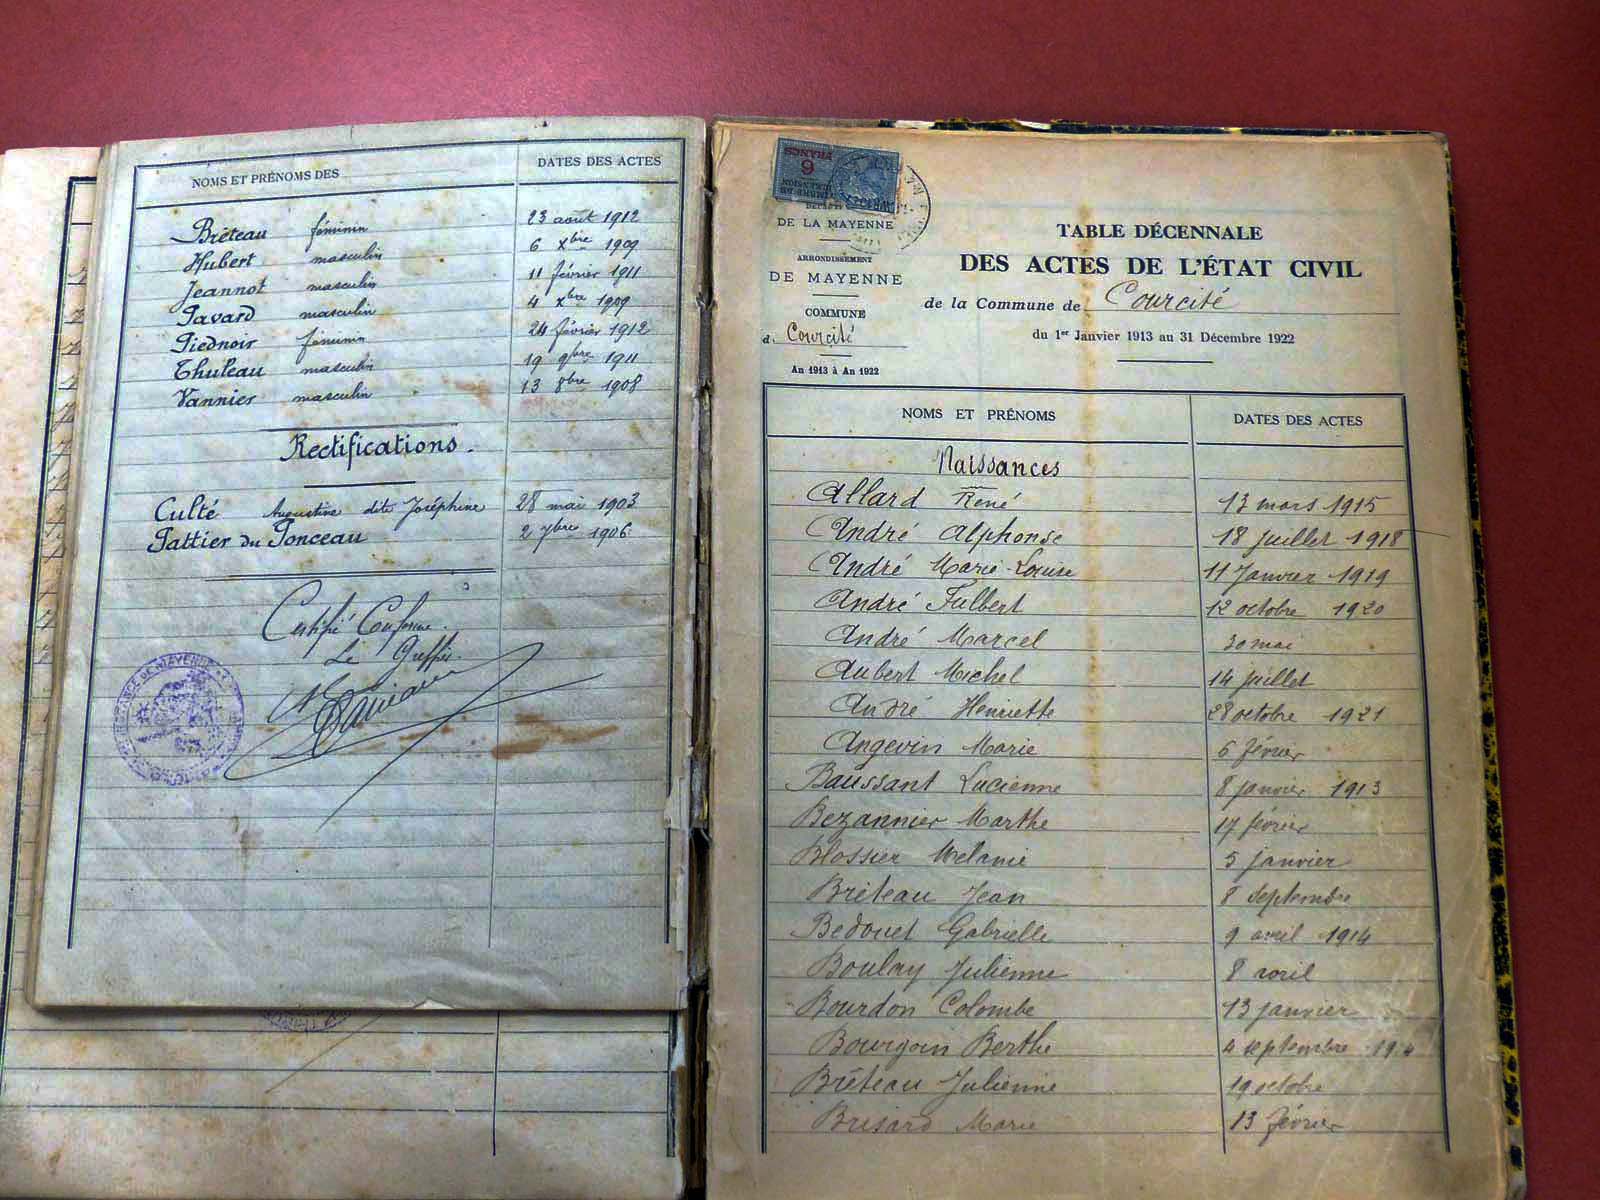 NOMS ET PRÉNOMS DES DATES DES ACTES
Bréteau féminin 23 août 1912
Hubert masculin 6 xbre 1909
Jeannot masculin 11 février 1911
Pavard masculin 4 xbre 1909
Piednoir féminin 24 février 1912
Thuleau masculin 19 9bre 1911
Vannier masculin 13 8bre 1908
Rectifications.
Culté Augustine dite Joséphine 28 mai 1903
Pattier du Ponceau 2 7bre 1906
Certifié Conforme.
Le Greffier
6
FRANCS
DE LA MAYENNE
ARRONDISSEMENT
DE MAYENNE
COMMUNE
d. Courcité
An 1913 à An 1922
TABLE DÉCENNALE
DES ACTES DE L'ÉTAT CIVIL
de la Commune de Courcité
du 1er Janvier 1913 au 31 Décembre 1922
NOMS ET PRÉNOMS DATES DES ACTES
Naissances
Allard René 13 mars 1915
André Alphonse 18 juillet 1918
André Marie-Louise 11 Janvier 1919
André Fulbert 12 octobre 1920
André Marcel 30 mai
Aubert Michel 14 juillet
André Henriette 28 octobre 1921
Angevin Marie 6 février
Baussant Lucienne 8 janvier 1913
Bezannier Marthe 17 février
Blossier Mélanie 5 janvier
Bréteau Jean 8 septembre
Bedouet Gabrielle 9 avril 1914
Boulay Julienne 8 avril
Bourdon Colombe 13 janvier
Bourgoin Berthe 4 septembre
Bréteau Julienne 19 octobre
Brisard Marie 13 février